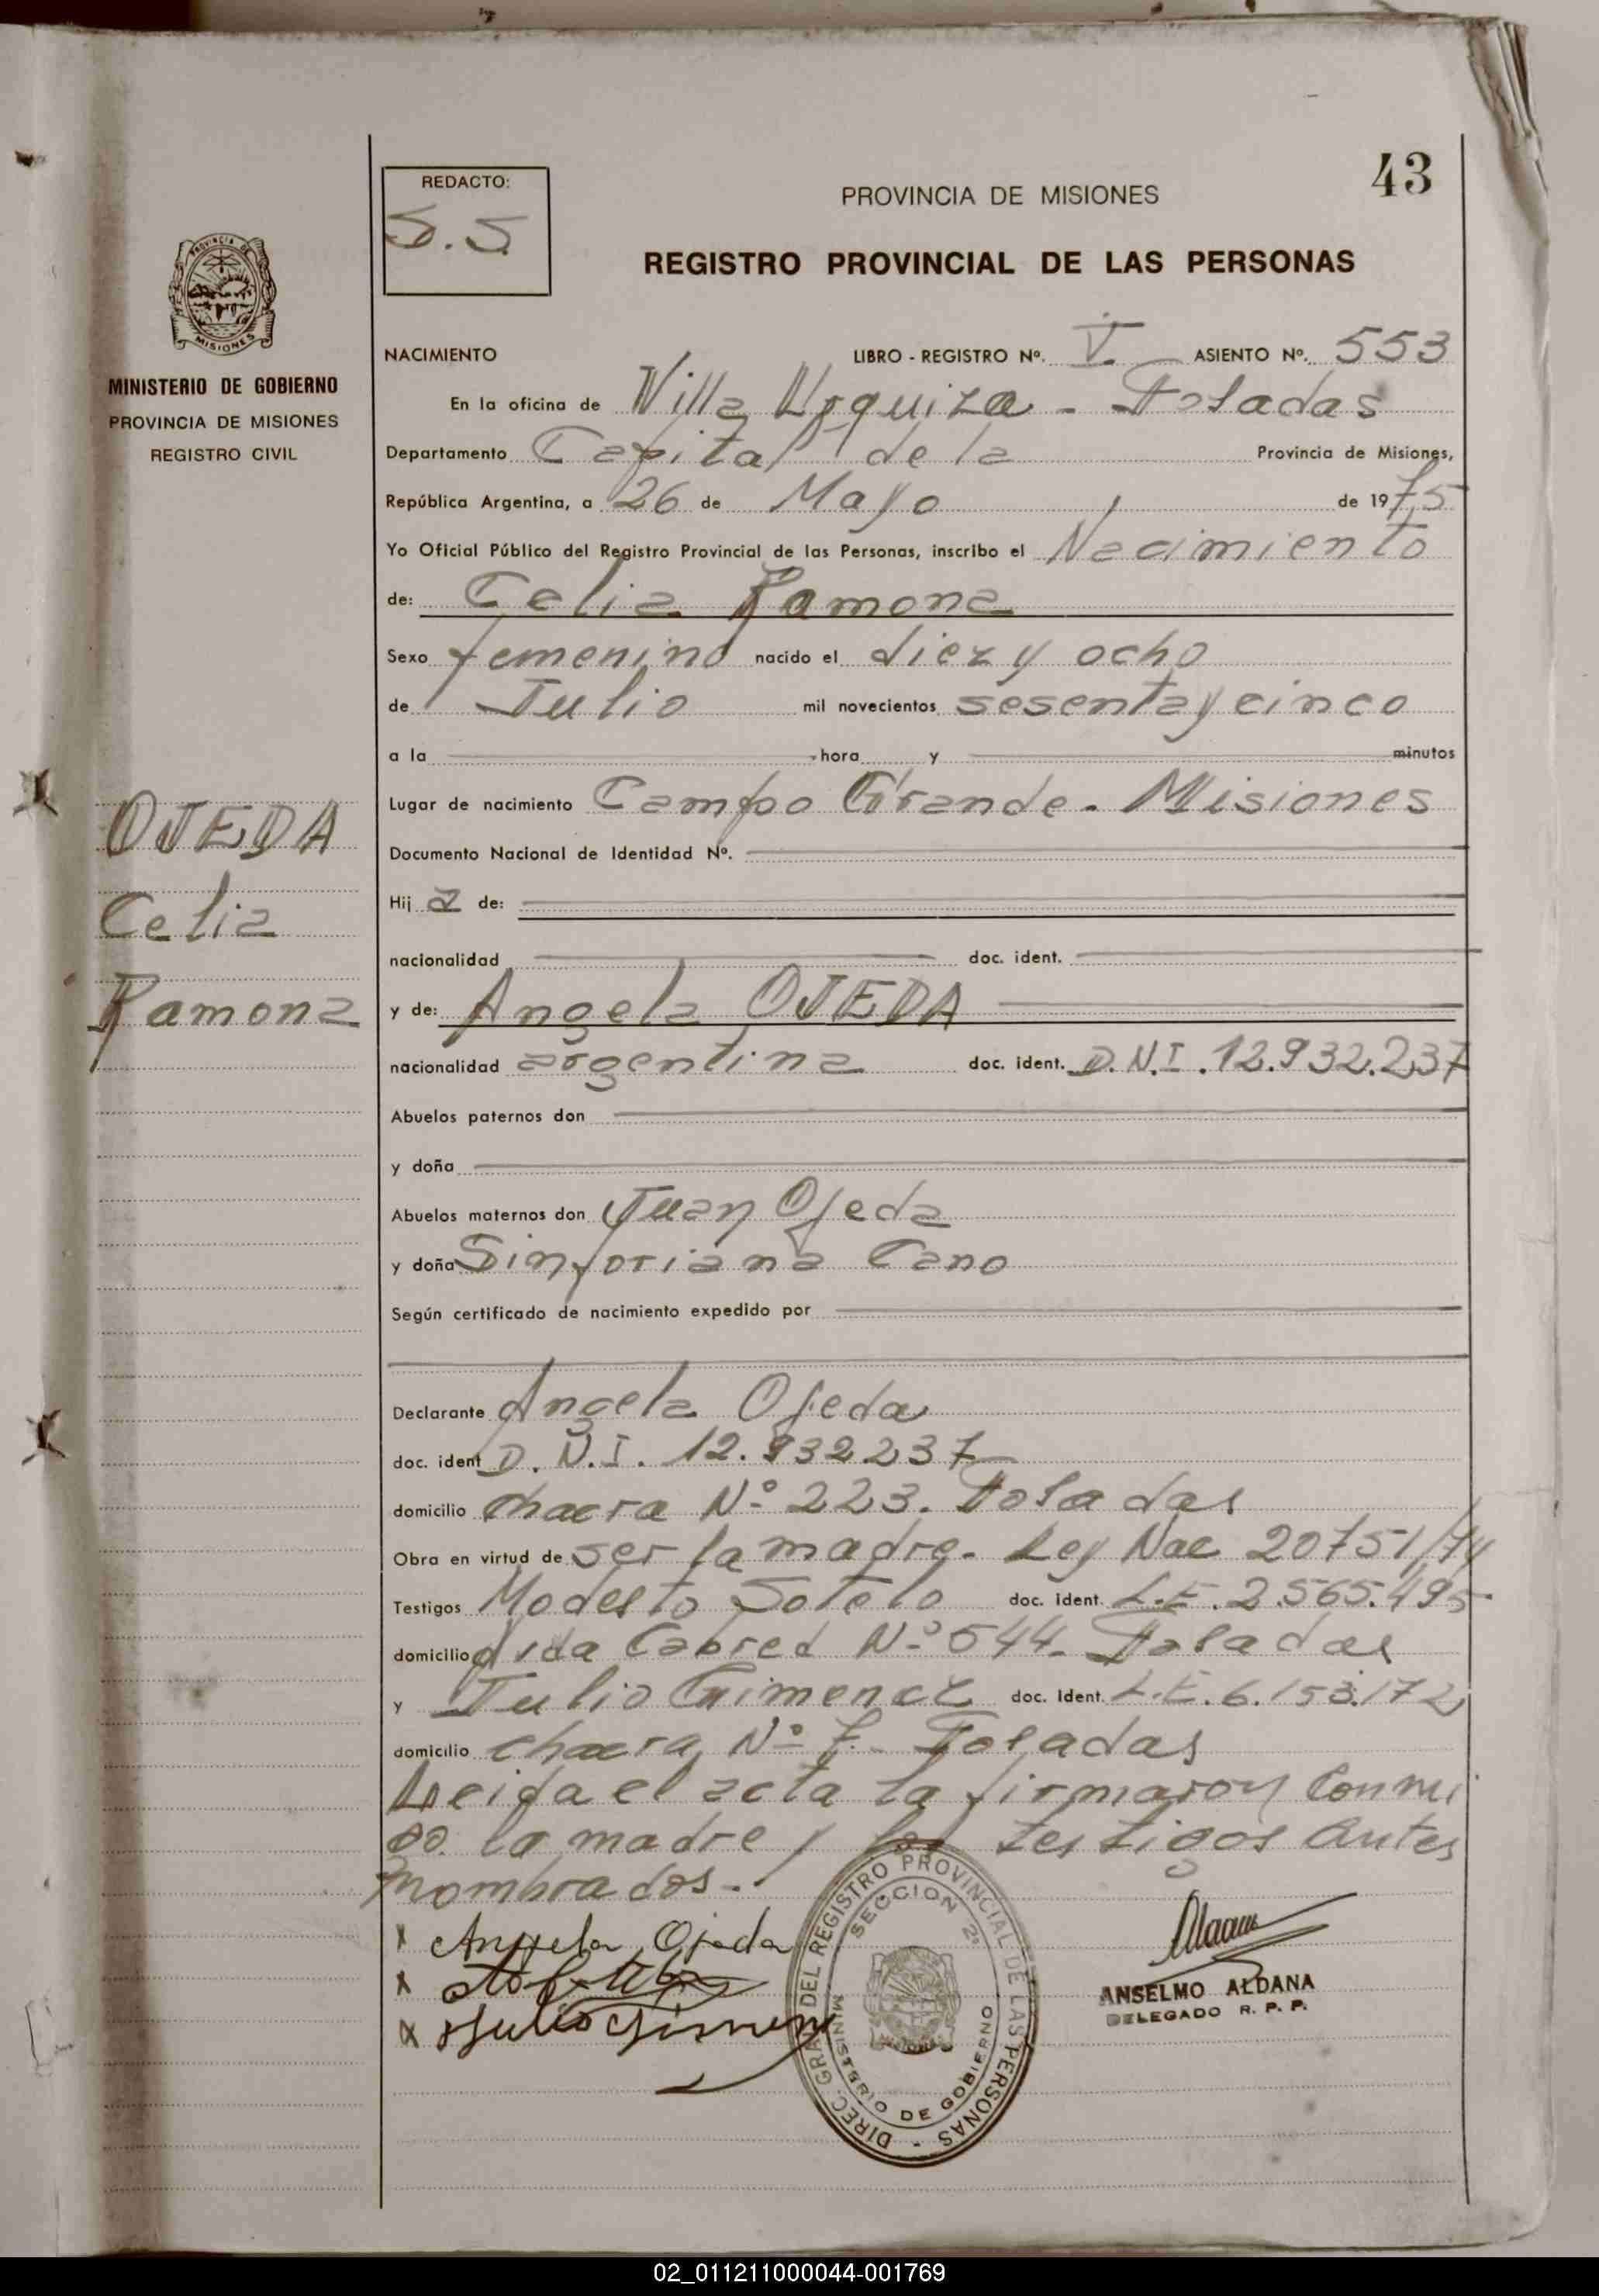 43
REDACTO:
S.S.
PROVINCIA DE MISIONES
REGISTRO PROVINCIAL DE LAS PERSONAS
PROVINCIA DE
MISIONES
MINISTERIO DE GOBIERNO
PROVINCIA DE MISIONES
REGISTRO CIVIL
OJEDA
Celia
Ramona
NACIMIENTO LIBRO - REGISTRO Nº. V. ASIENTO Nº. 553
En la oficina de Villa Urquiza - Posadas
Departamento Capital de la Provincia de Misiones,
República Argentina, a 26 de Mayo de 1975
Yo Oficial Público del Registro Provincial de las Personas, inscribo el Nacimiento
de: Celia Ramona
Sexo femenino nacido el diez y ocho
de Julio mil novecientos sesenta y cinco
a la hora y minutos
Lugar de nacimiento Campo Grande - Misiones
Documento Nacional de Identidad Nº.
Hija de:
nacionalidad doc. ident.
y de: Angela OJEDA
nacionalidad argentina doc. ident. D.N.I. 12.932.237
Abuelos paternos don
y doña
Abuelos maternos don Juan Ojeda
y doña Sinforiana Cano
Según certificado de nacimiento expedido por
Declarante Angela Ojeda
doc. ident D.N.I. 12.932237
domicilio chacra Nº 223. Posadas
Obra en virtud de ser la madre. Ley Nac 20751/74
Testigos Modesto Sotelo doc. ident. L.E. 2.565.495
domicilio Avda Cabred Nº 544. Posadas
y Julio Gimenez doc. Ident. L.E. 6.153.172
domicilio chacra Nº 7. Posadas
Leida el acta la firmaron conmi
go la madre y los testigos antes
nombrados.
x Angela Ojeda
x
x Julio Gimenez
DIREC. GRAL. DEL REGISTRO PROVINCIAL DE LAS PERSONAS -
SECCION 2º
MINISTERIO DE GOBIERNO
ANSELMO ALDANA
DELEGADO R. P. P.
02_011211000044-001769